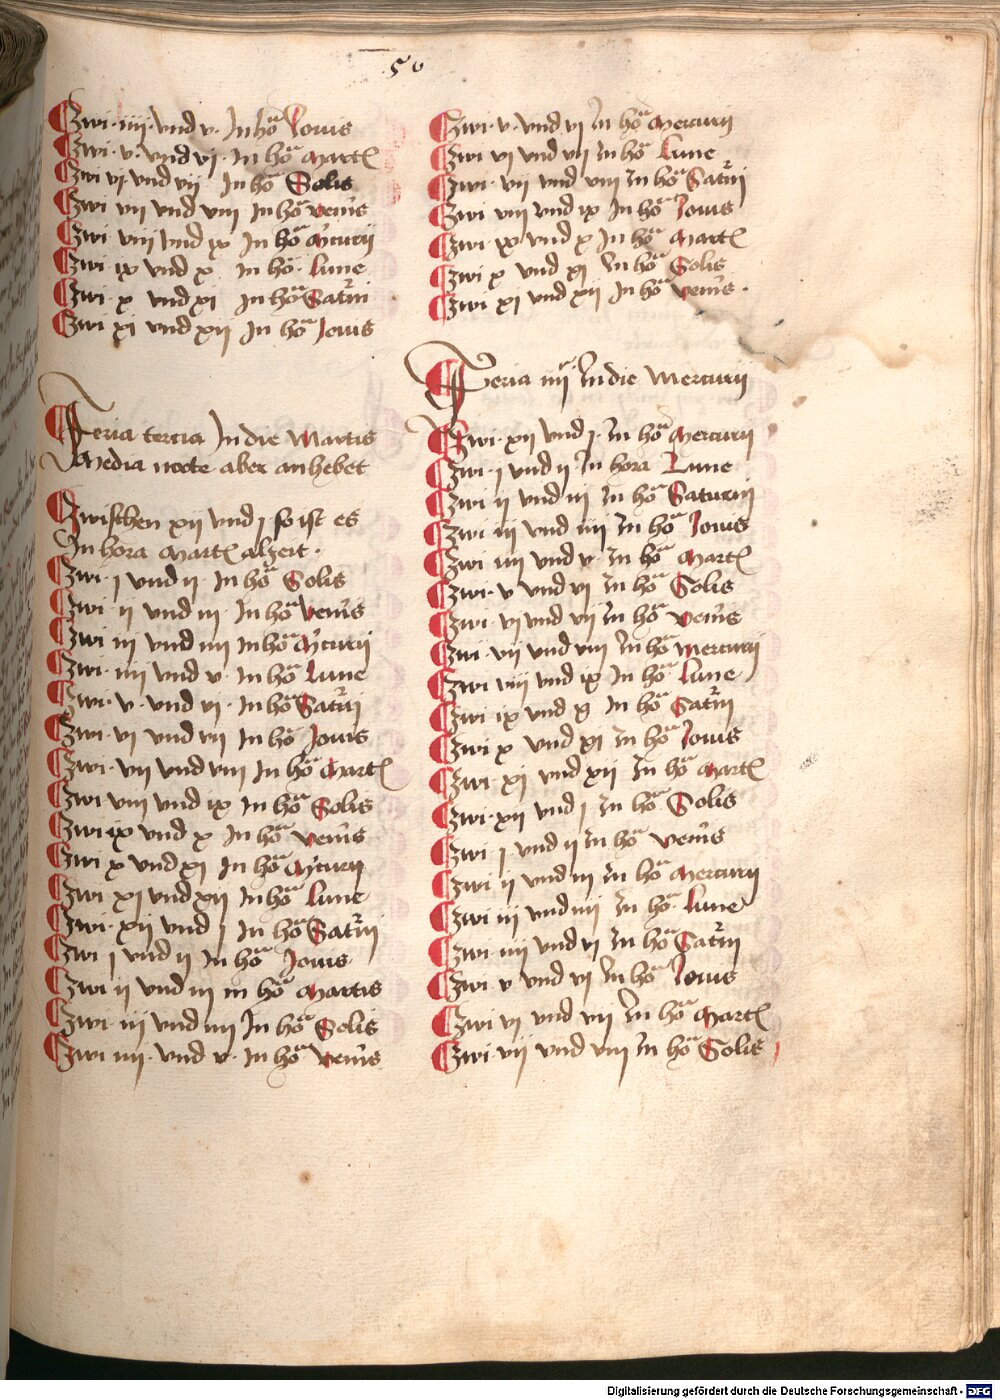 50
Zwi · iiij · vnd v · In hoa Jouis
Zwi · v · vnd vj · In hoa Martis
Zwi vj vnd vij In hoa Solis
Zwi vij vnd viij In hoa venis
Zwi viij vnd ix In hoa Mcurij
Zwi ix vnd x In ho Lune
Zwi x vnd xj In hoa Satrni
Zwi xj vnd xij In hoa Jouis
Feria tercia In die Martis
Media nocte aber anhebet
Zwischen xij vnd j so ist es
In hora Martis alzeit ·
Zwi · j vnd ij · In hoa Solis
Zwi · ij vnd iij · In hoa venis
Zwi iij vnd iiij In hoa Mcurij
Zwi · iiij vnd v · In hoa Lune
Zwi · v · vnd vj · In hoa Satrni
Zwi · vj vnd vij In hoa Jouis
Zwi · vij vnd viij In hoa Martis
Zwi viij vnd ix In hoa Solis
Zwi ix vnd x In hoa venis
Zwi x vnd xj In hoa Mcurij
Zwi xj vnd xij In hoa Lune
Zwi · xij vnd j In hoa Satrnj
Zwi j vnd ij In hoa Jouis
Zwi ij vnd iij in hoa Martis
Zwi · iij vnd iiij In hoa Solis
Zwi iiij · vnd v · In hoa venis
Zwi · v · vnd vj In hoa Mercurij
Zwi vj vnd vij In hoa Lune
Zwi · vij vnd viij In hoa Satrnj
Zwi viij vnd ix In hoa Jouis
Zwi ix vnd x In hoa Martis
Zwi x vnd xj In hoa Solis
Zwi xj vnd xij In hoa venis ·
Feria iiij In die Mercurij
Zwi · xij vnd j · In hoa Mercurij
Zwi · j vnd ij In hora Lune
Zwi ij vnd iij In hoa Saturnj
Zwi iij vnd iiij In hoa Jouis
Zwi iiij vnd v · In hoa Martis
Zwi · v vnd vj In hoa Solis
Zwi · vj vnd vij In hoa venis
Zwi · vij vnd viij In hoa mercurij
Zwi viij vnd ix In hoa Lune
Zwi · ix vnd x In hoa Satrnj
Zwi x vnd xj In hoa Jouis
Zwi · xj vnd xij In hoa Martis
Zwi · xij vnd j In hoa Solis
Zwi · j vnd ij In hoa venis
Zwi ij vnd iij In hoa Mercurij
Zwi iij vnd iiij In hoa Lune
Zwi · iiij vnd vj In hoa Satrnj
Zwi v vnd vj In hoa Jouis
Zwi vj vnd vij In hoa Martis
Zwi · vij vnd viij In hoa Solis
Digitalisierung gefördert durch die Deutsche Forschungsgemeinschaft - DFG